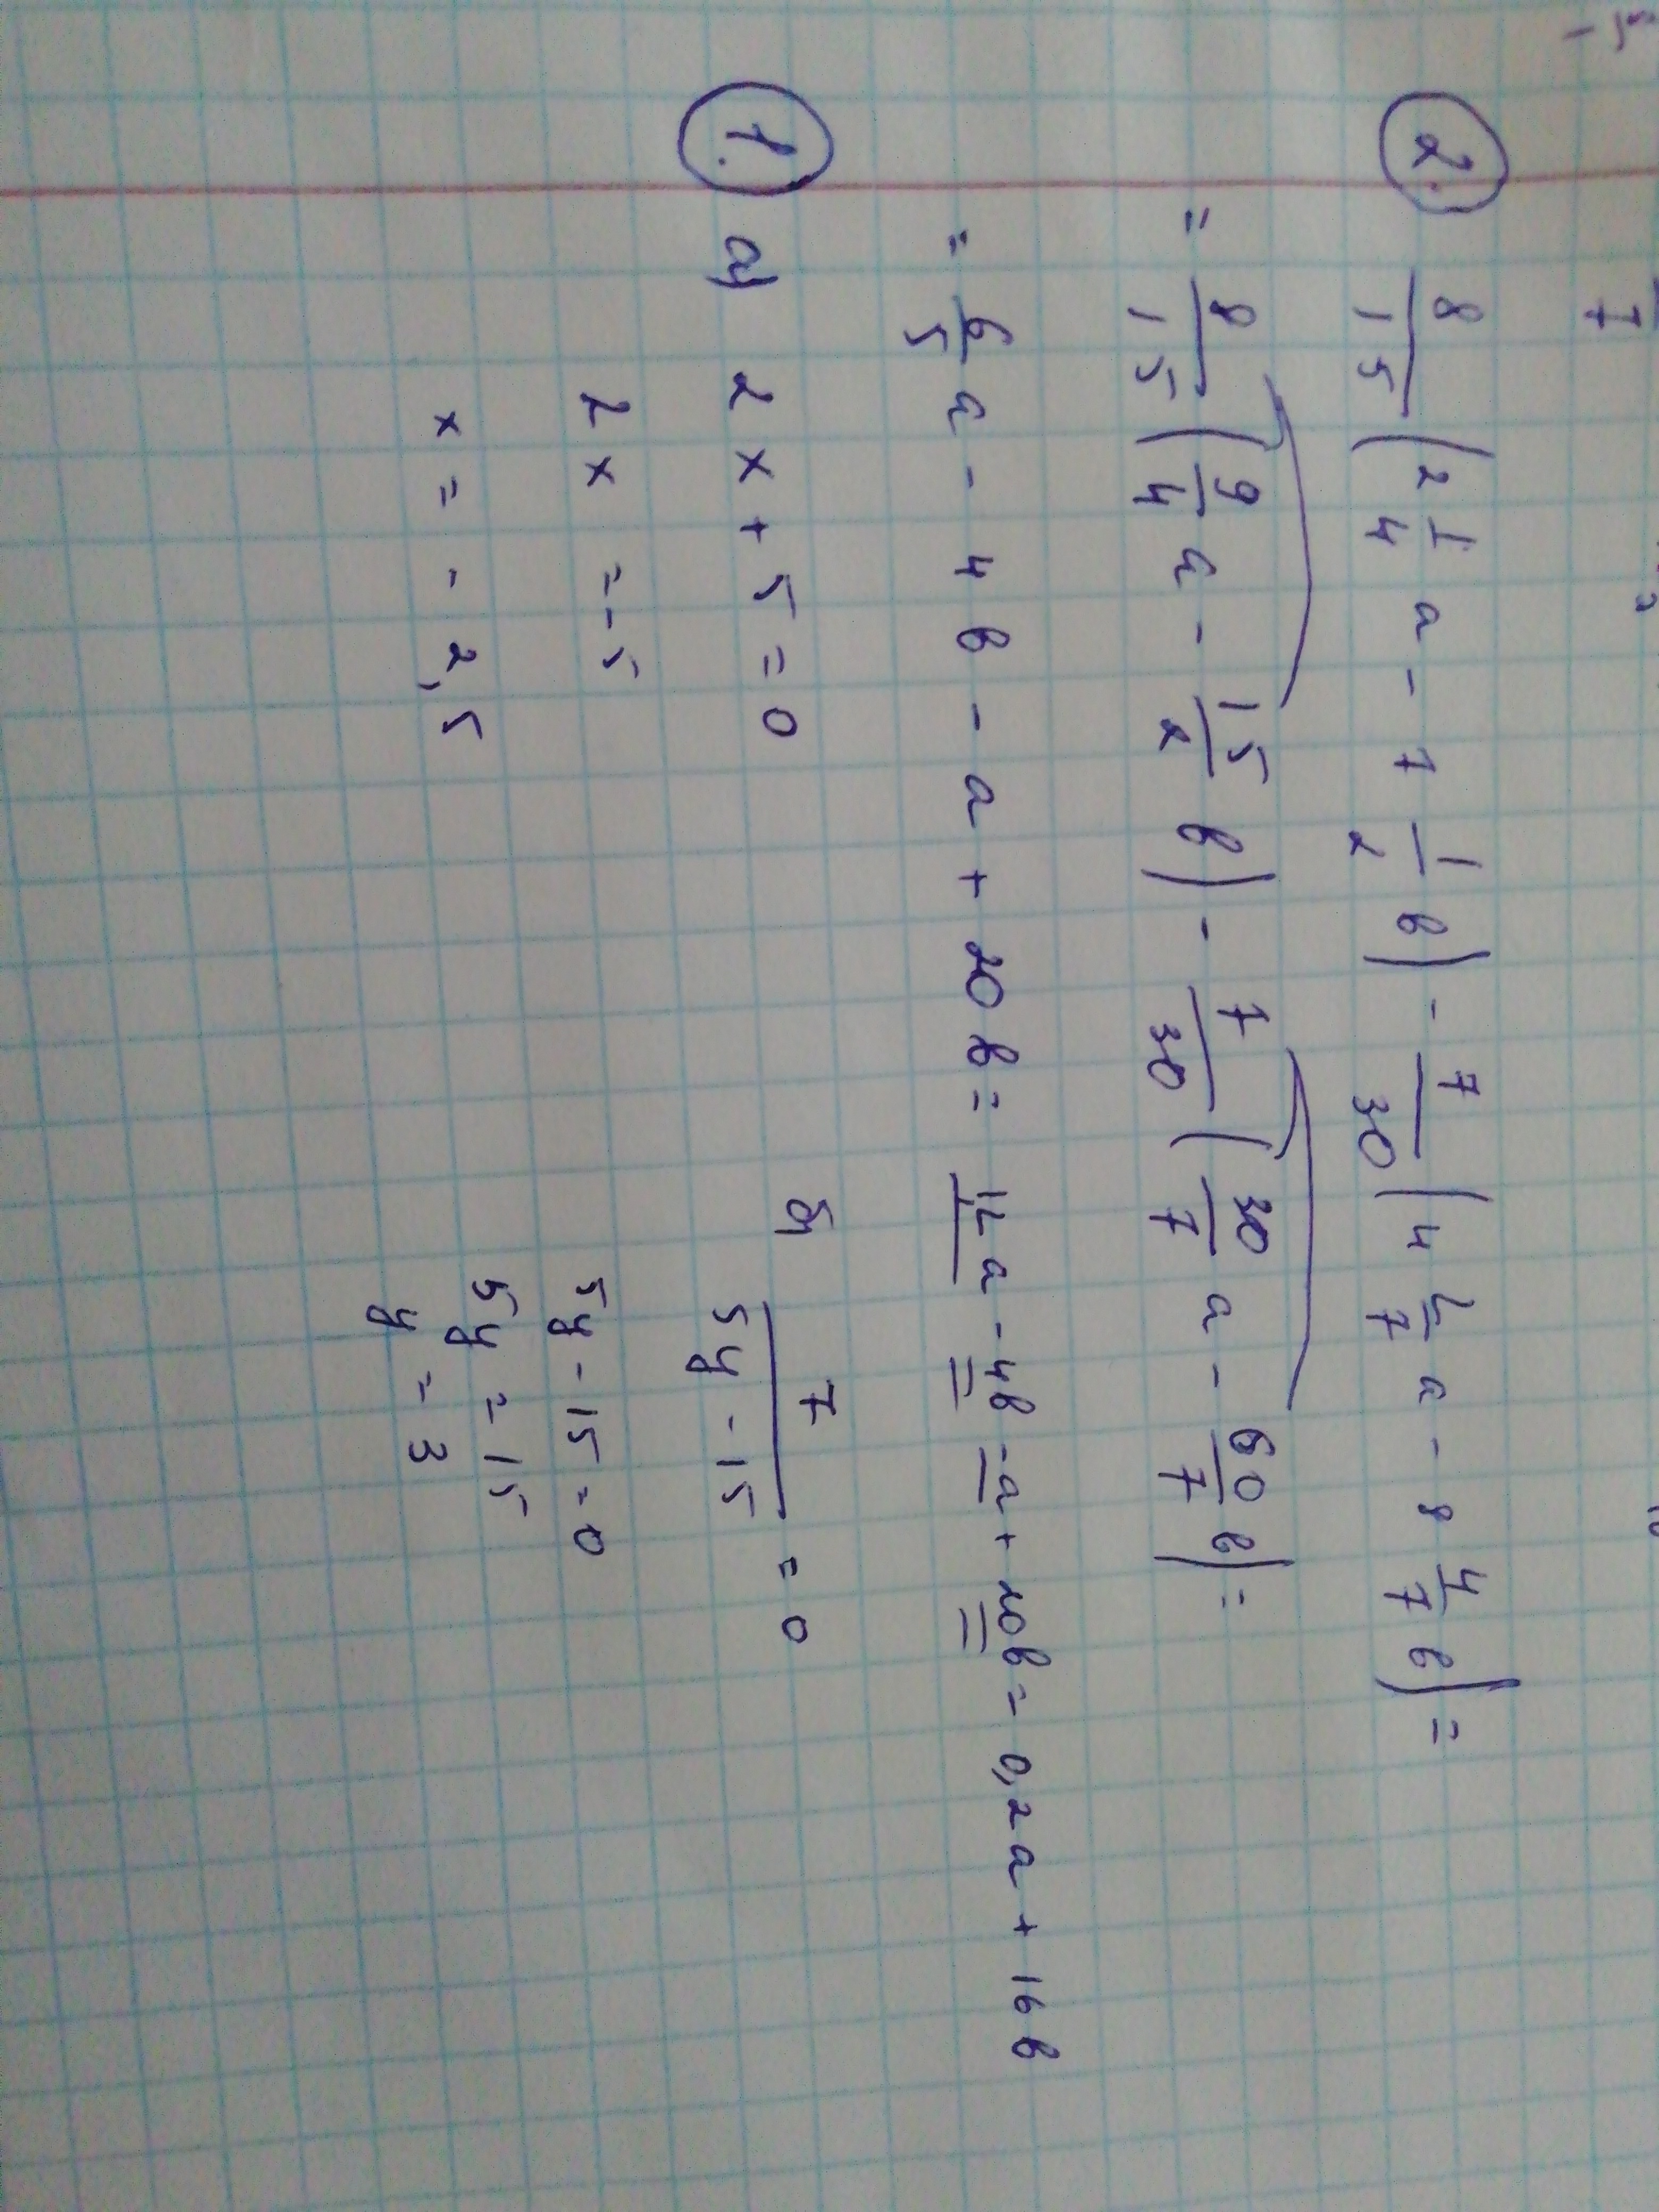 2. 8/15 (2 1/4 a - 7 1/2 в) - 7/30 (4 2/7 a - 8 4/7 в) =
= 8/15 (9/4 a - 15/2 в) - 7/30 (30/7 a - 60/7 в) =
= 6/5 a - 4в - a + 20в = 1,2a - 4в - a + 20в = 0,2a + 16в
1. а) 2x + 5 = 0
2x = -5
x = -2,5
б) 7/(5y - 15) = 0
5y - 15 = 0
5y = 15
y = 3